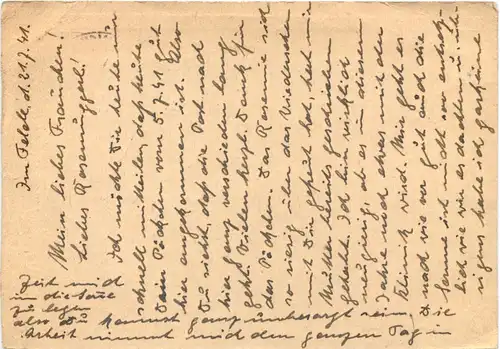 Im Felde, d. 21.7.41.
Mein liebes Frauchen!
Liebes
Ich möchte Dir heute nur
schnell mitteilen, daß heute
Dein Päckchen vom 5.7.41 gut
hier angekommen ist. Also
Du siehst, daß die Post nach
hier ganz verschieden lang
geht. Vielen herzl. Dank für
das Päckchen. Das Rosemie sich
so riesig über das Wiedersehen
mit Dir gefreut hat, hat mir
Mutter bereits geschrieben
gehabt. Ich bin wirklich
neugierig, ob es in diesem
Jahre noch etwas mit der
Klinik wird. Mir geht es
nach wie vor gut und die
Sonne ist nicht so entsetz-
lich wie wir es dachten u. üb-
rigens habe ich gar keine
Zeit mich
in die Sonne
zu legen
also Du kannst ganz unbesorgt sein. Die
Arbeit nimmt mich den ganzen Tag in